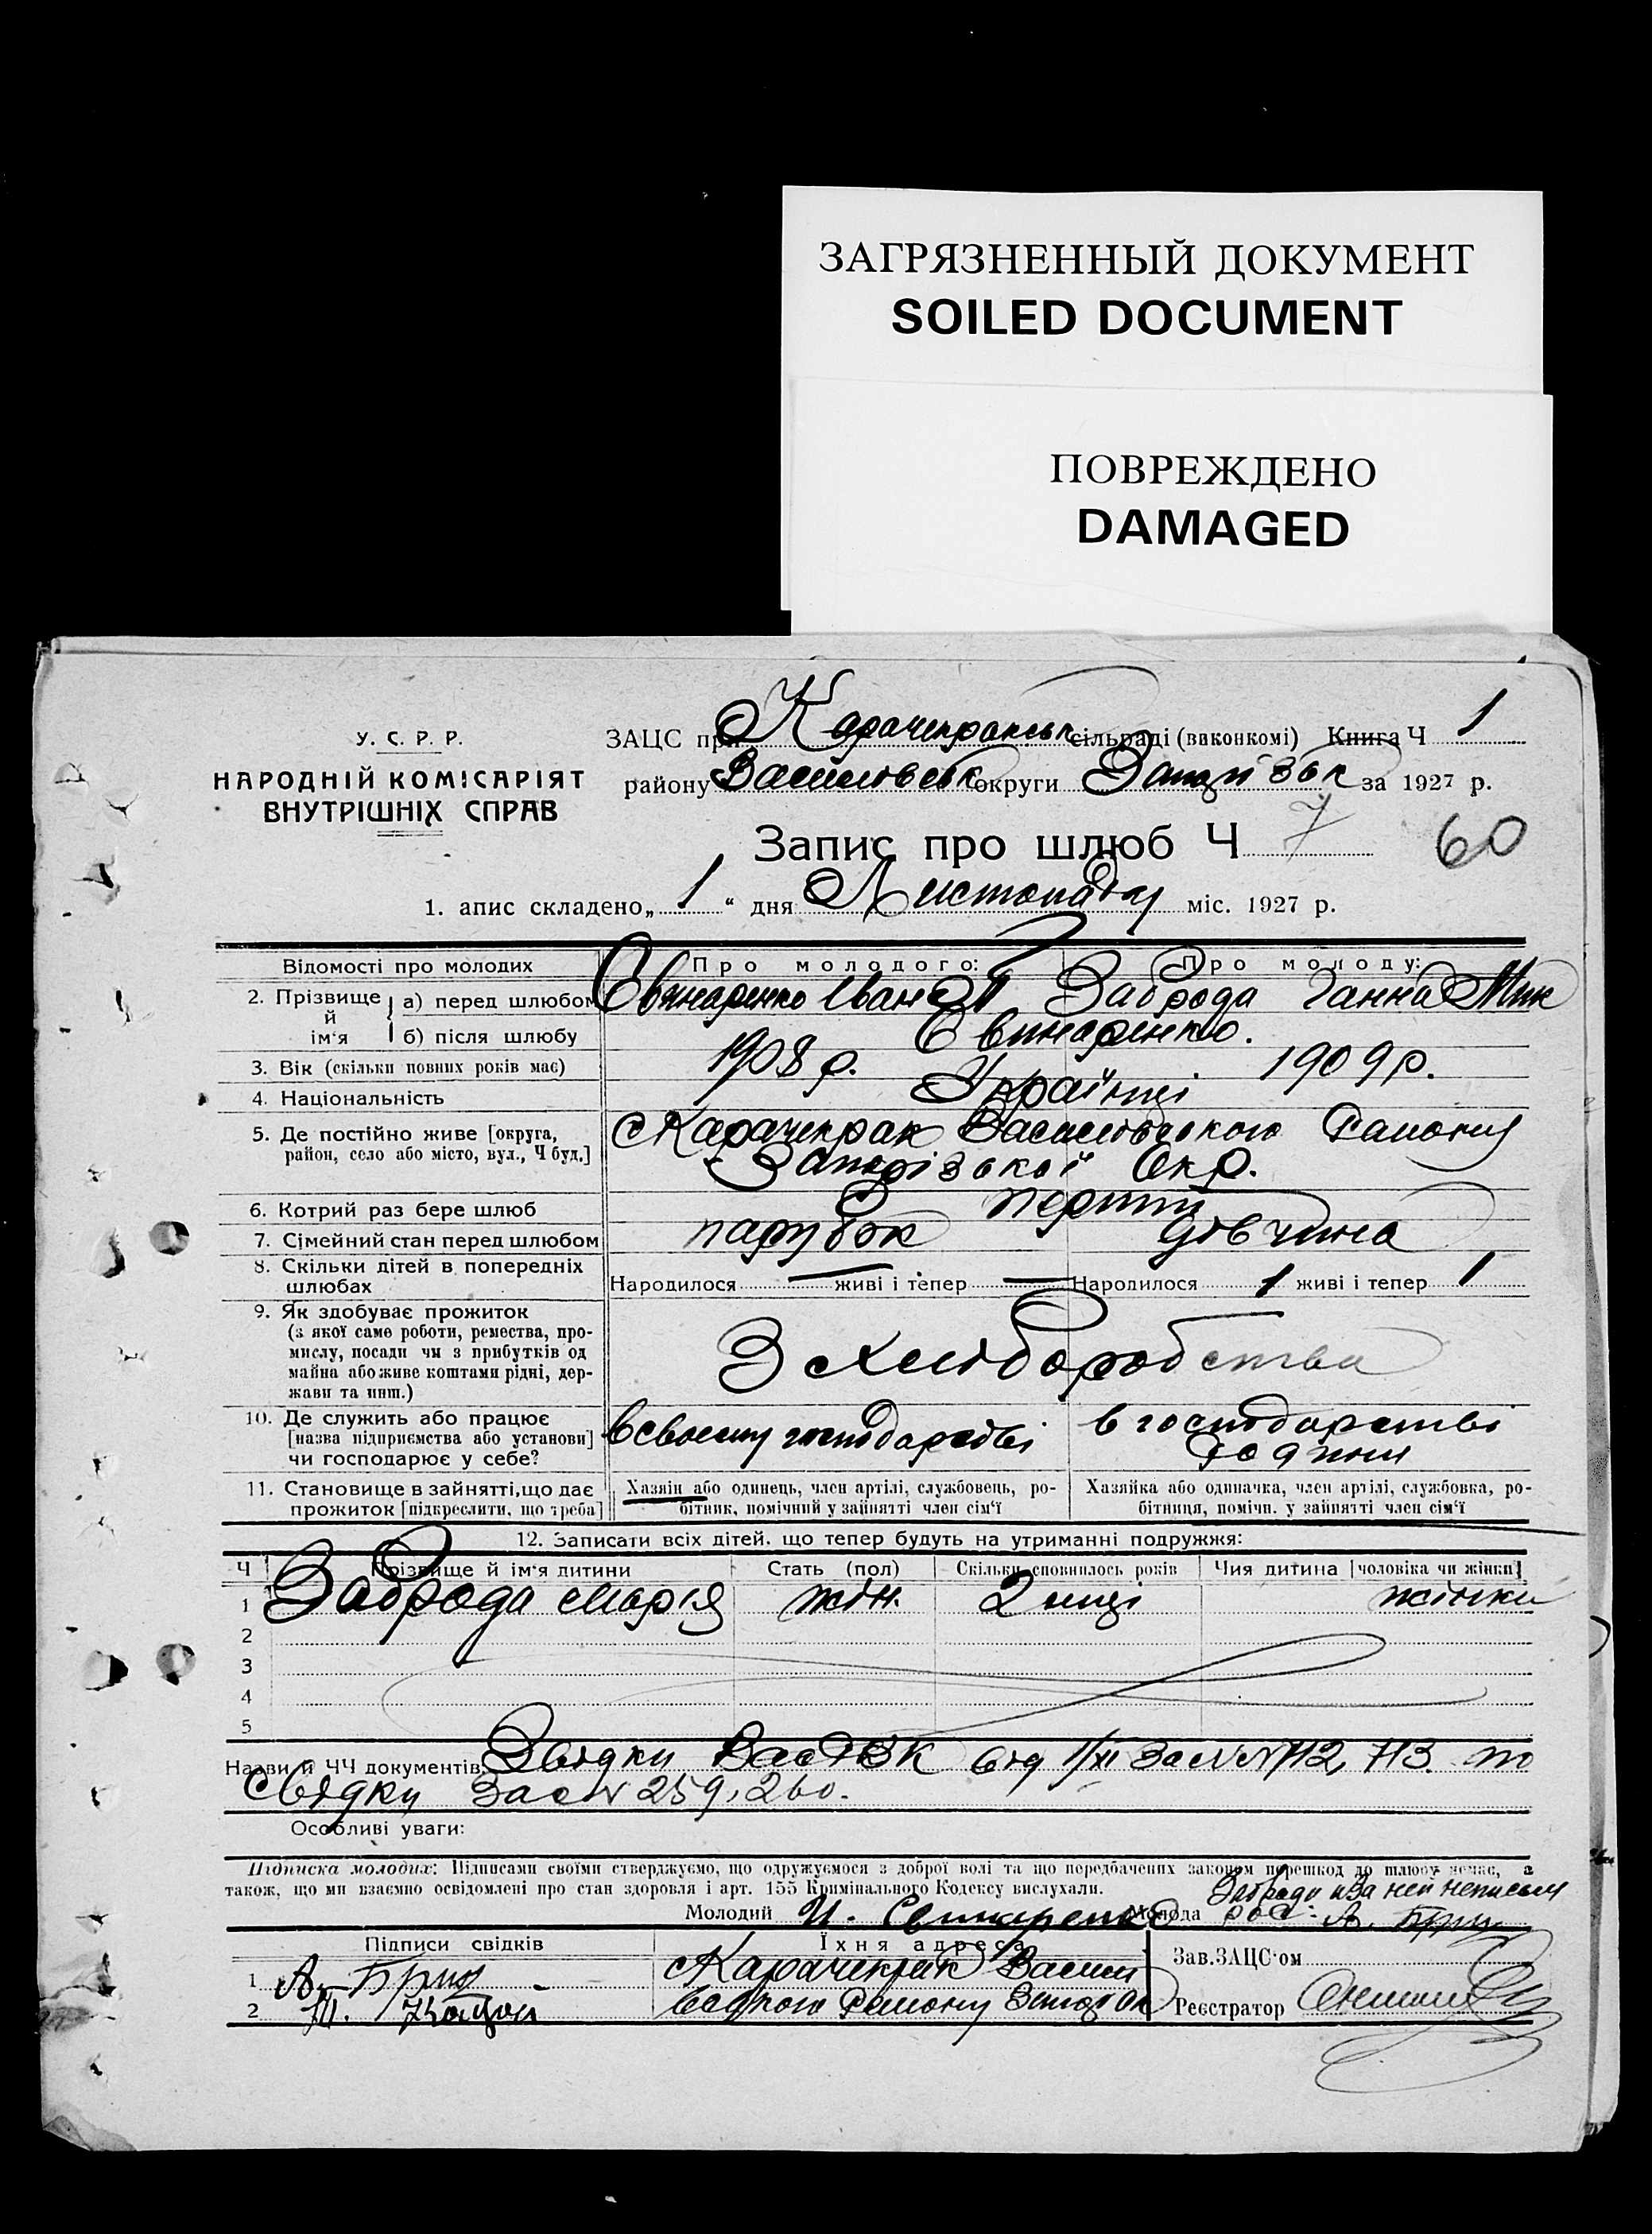 ЗАГРЯЗНЕННЫЙ ДОКУМЕНТ
SOILED DOCUMENT
ПОВРЕЖДЕНО
DAMAGED
У. С. Р. Р.
НАРОДНІЙ КОМІСАРІЯТ
ВНУТРІШНІХ СПРАВ
ЗАЦС при Карачекракськ сільраді (виконкомі) Книга Ч 1
району Василівськ округи Запоріззьк за 1927 р.
Запис про шлюб Ч 7 60
1. апис складено „ 1 “ дня Листопада міс. 1927 р.
Відомості про молодих Про молодого: Про молоду:
2. Прізвище й ім'я а) перед шлюбом Свинаренко Іван Заброда Ганна Мик
б) після шлюбу Свинаренко.
3. Вік (скільки повних років має) 1908 р. 1909 р.
4. Національність Українці
5. Де постійно живе [округа, район, село або місто, вул., Ч буд.] с Карачекрак Василівського Району
Запорізької Окр.
6. Котрий раз бере шлюб перший
7. Сімейний стан перед шлюбом парубок дівчина
8. Скільки дітей в попередніх шлюбах Народилося — живі і тепер — Народилося 1 живі і тепер 1
9. Як здобуває прожиток
(з якої саме роботи, ремества, про-
мислу, посади чи з прибутків од
майна або живе коштами рідні, дер-
жави та инш.)
З хліборобства
10. Де служить або працює
[назва підприємства або установи]
чи господарює у себе?
в своєму господарстві
в господарстві
родини
11. Становище в зайнятті, що дає
прожиток [підкреслити, що треба]
Хазяїн або одинець, член артілі, службовець, ро-
бітник, помічний у зайнятті член сім'ї
Хазяйка або одиначка, член артілі, службовка, ро-
бітниця, помічн. у зайнятті член сім'ї
12. Записати всіх дітей, що тепер будуть на утриманні подружжя:
Ч Прізвище й ім'я дитини Стать (пол) Скільки сповнилось років Чия дитина [чоловіка чи жінки]
1 Заброда Марія жін. 2 жінки
2
3
4
5
Назви й ЧЧ документів: Звідки від 1/XI За №№ 712, 713.
Свідки За № 259, 260.
Особливі уваги:
Підписка молодих: Підписами своїми стверджуємо, що одружуємося з доброї волі та що передбачених законом перешкод до шлюбу немає, а
також, що ми взаємно освідомлені про стан здоров'я і арт. 155 Кримінального Кодексу вислухали.
Молодий И. Свинаренко Молода А. Бриц
Підписи свідків Їхня адреса Зав. ЗАЦС'ом
1 А. Бриц Карачекрак Васили
2 Району Реєстратор